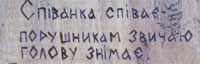 Співанка співає
порушникам звичаю
голову знімає